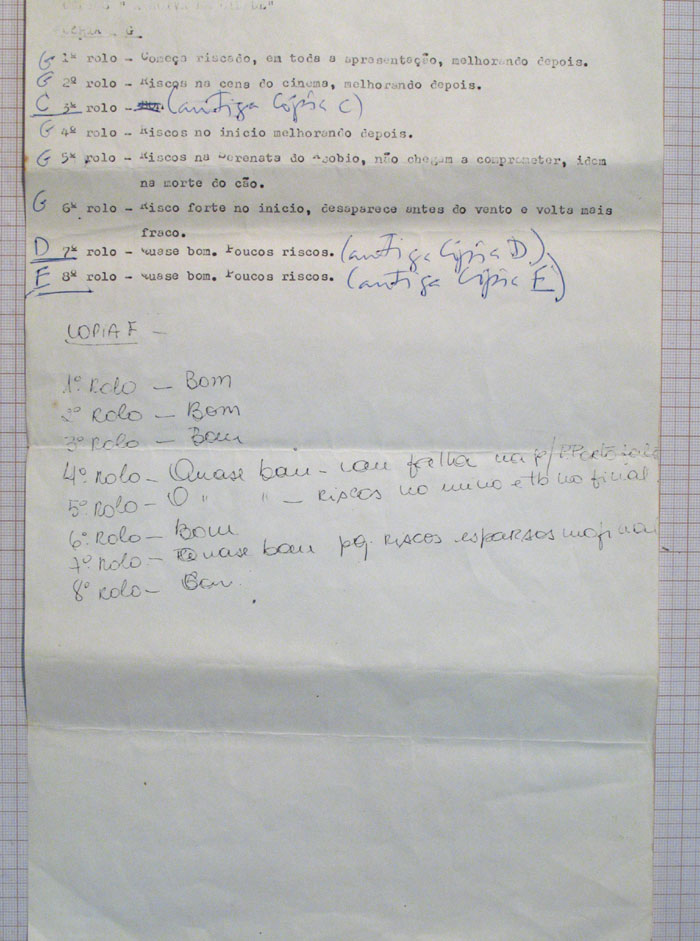 G 1º rolo - Começo riscado, em toda a apresentação, melhorando depois.
G 2º rolo - Riscos na cena do cinema, melhorando depois.
C 3º rolo - (antiga Cópia C)
G 4º rolo - Riscos no inicio melhorando depois.
G 5º rolo - Riscos na Serenata do, não chegam a comprometer, idem
na morte do cão.
G 6º rolo - Risco forte no inicio, desaparece antes do vento e volta mais
fraco.
D 7º rolo - Quase bom. Poucos riscos. (antiga Cópia D)
E 8º rolo - Quase bom. Poucos riscos. (antiga Cópia E)
COPIA F -
1º Rolo - Bom
2º Rolo - Bom
3º Rolo - Bom
4º Rolo - Quase bom - falha na
5º Rolo - O " " - riscos no no final
6º Rolo - Bom
7º Rolo - Quase bom pq. riscos esparsos
8º Rolo - Bom.